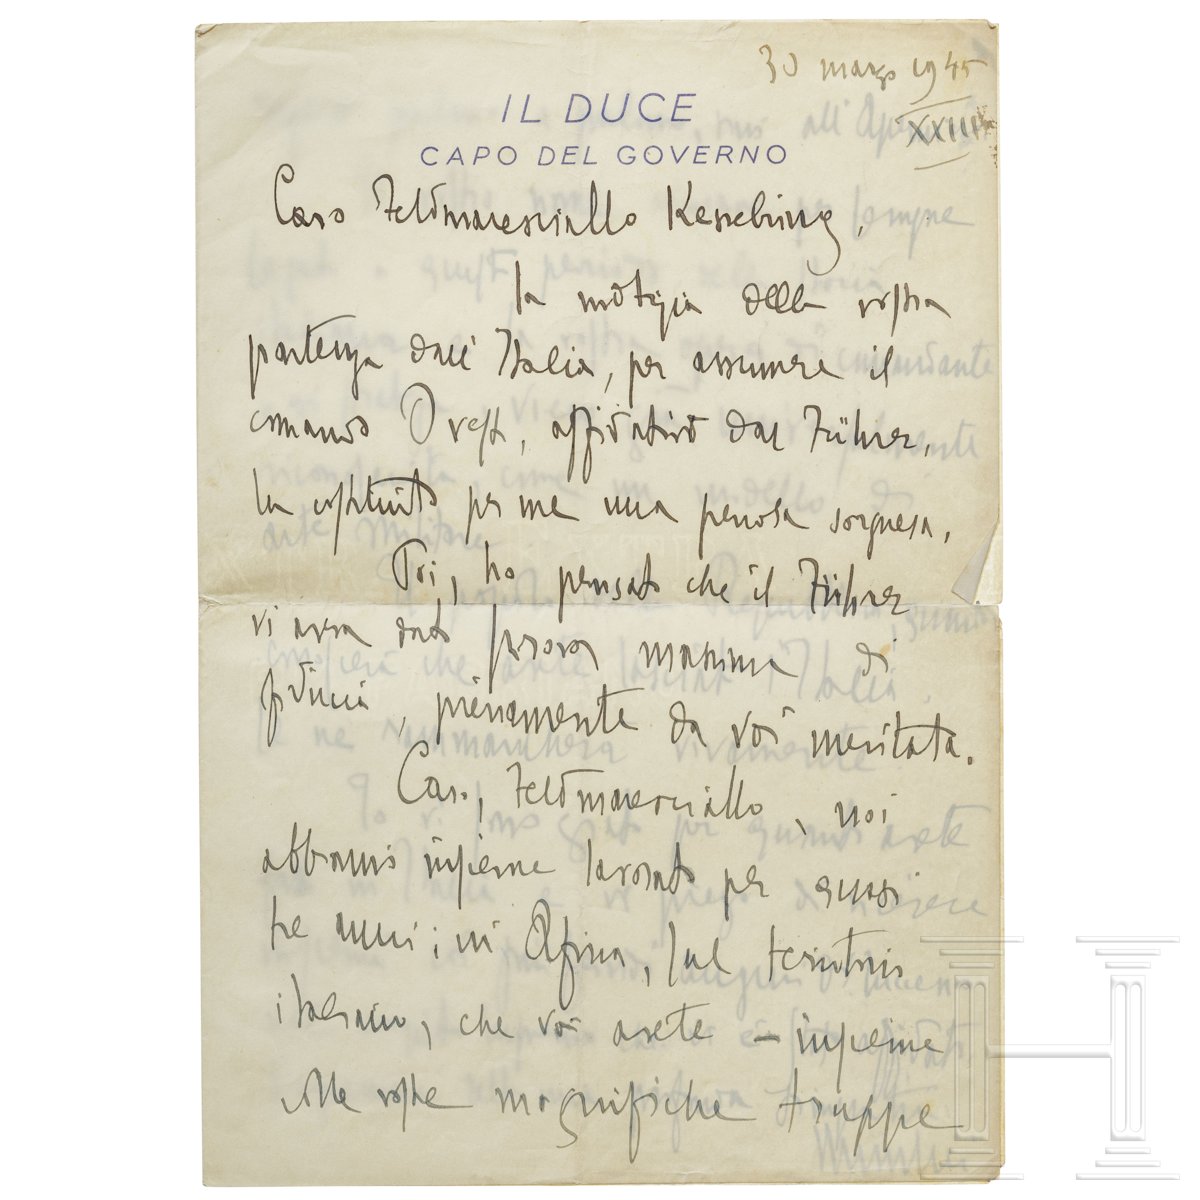 30 marzo 1945
XXIII
IL DUCE
CAPO DEL GOVERNO
Caro Feldmaresciallo Kesselring,
la notizia della vostra
partenza dall'Italia, per assumere il
comando Ovest, affidatovi dal Führer,
ha costituito per me una penosa sorpresa.
Poi, ho pensato che il Führer
vi aveva dato prova massima di
fiducia, pienamente da voi meritata.
Caro, Feldmaresciallo, noi
abbiamo insieme lavorato per quasi
tre anni; in Africa, sul territorio
italiano, che voi avete – insieme
alle vostre magnifiche truppe